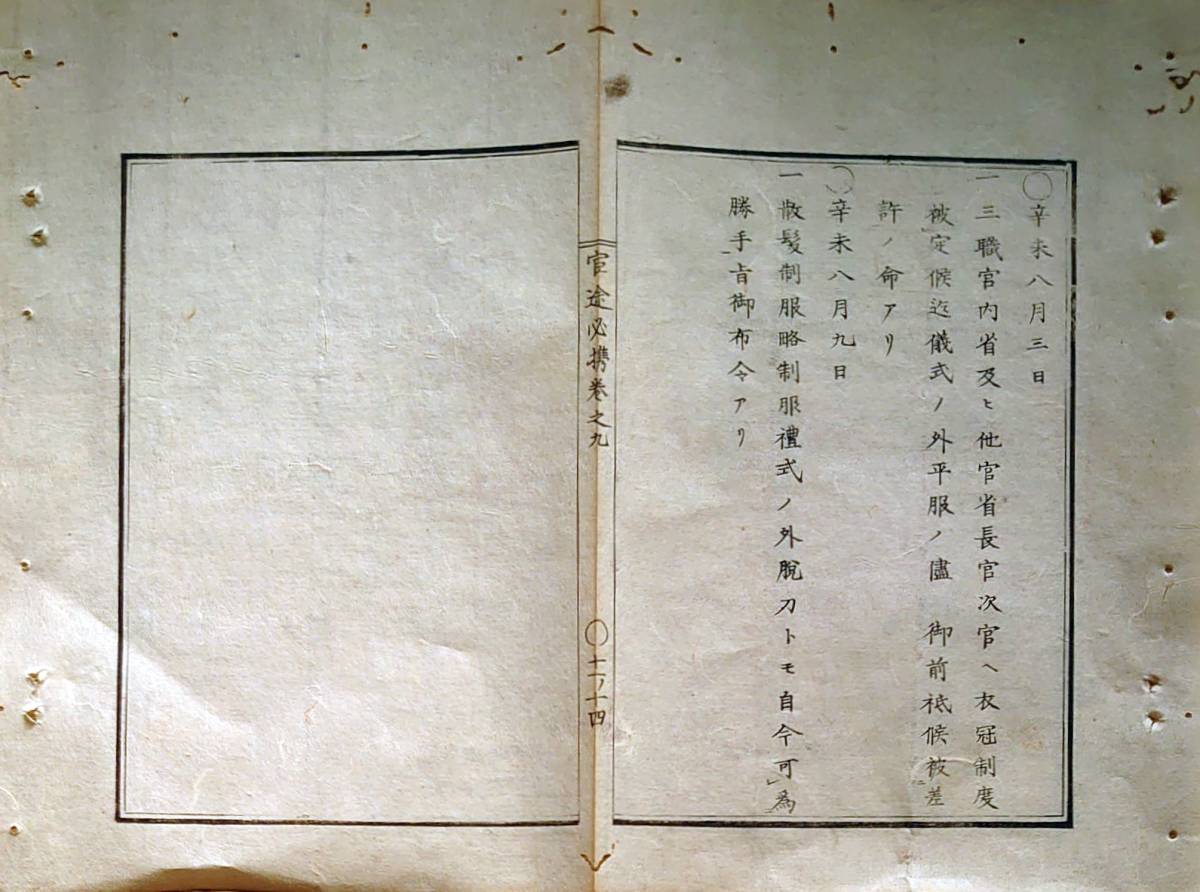 〇辛未八月三日
一三職官内省及ヒ他官省長官次官ヘ衣冠制度
被定候迄儀式ノ外平服ノ儘 御前祗候被差
許ノ命アリ
〇辛未八月九日
一散髪制服略制服禮式ノ外脱刀トモ自今可為
勝手旨御布令アリ
官途必携巻之九
〇十一ノ十四